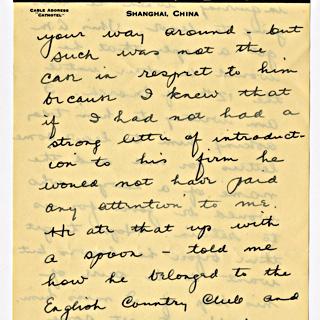 CABLE ADDRESS
"CATHOTEL"
SHANGHAI, CHINA
your way around - but
such was not the
case in respect to him
because I knew that
if I had not had a
strong letter of introduct-
ion to his firm he
would not have paid
any attention to me.
He ate that up with
a spoon - told me
how he belonged to the
English Country Club and